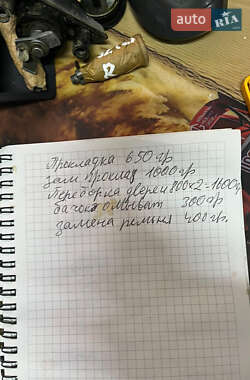 auto RIA
Прокладка 650гр
зам проклад 1000гр
Переборка дверей 800x2=1600гр
бачок омыват 300гр
замена ремня 400гр.